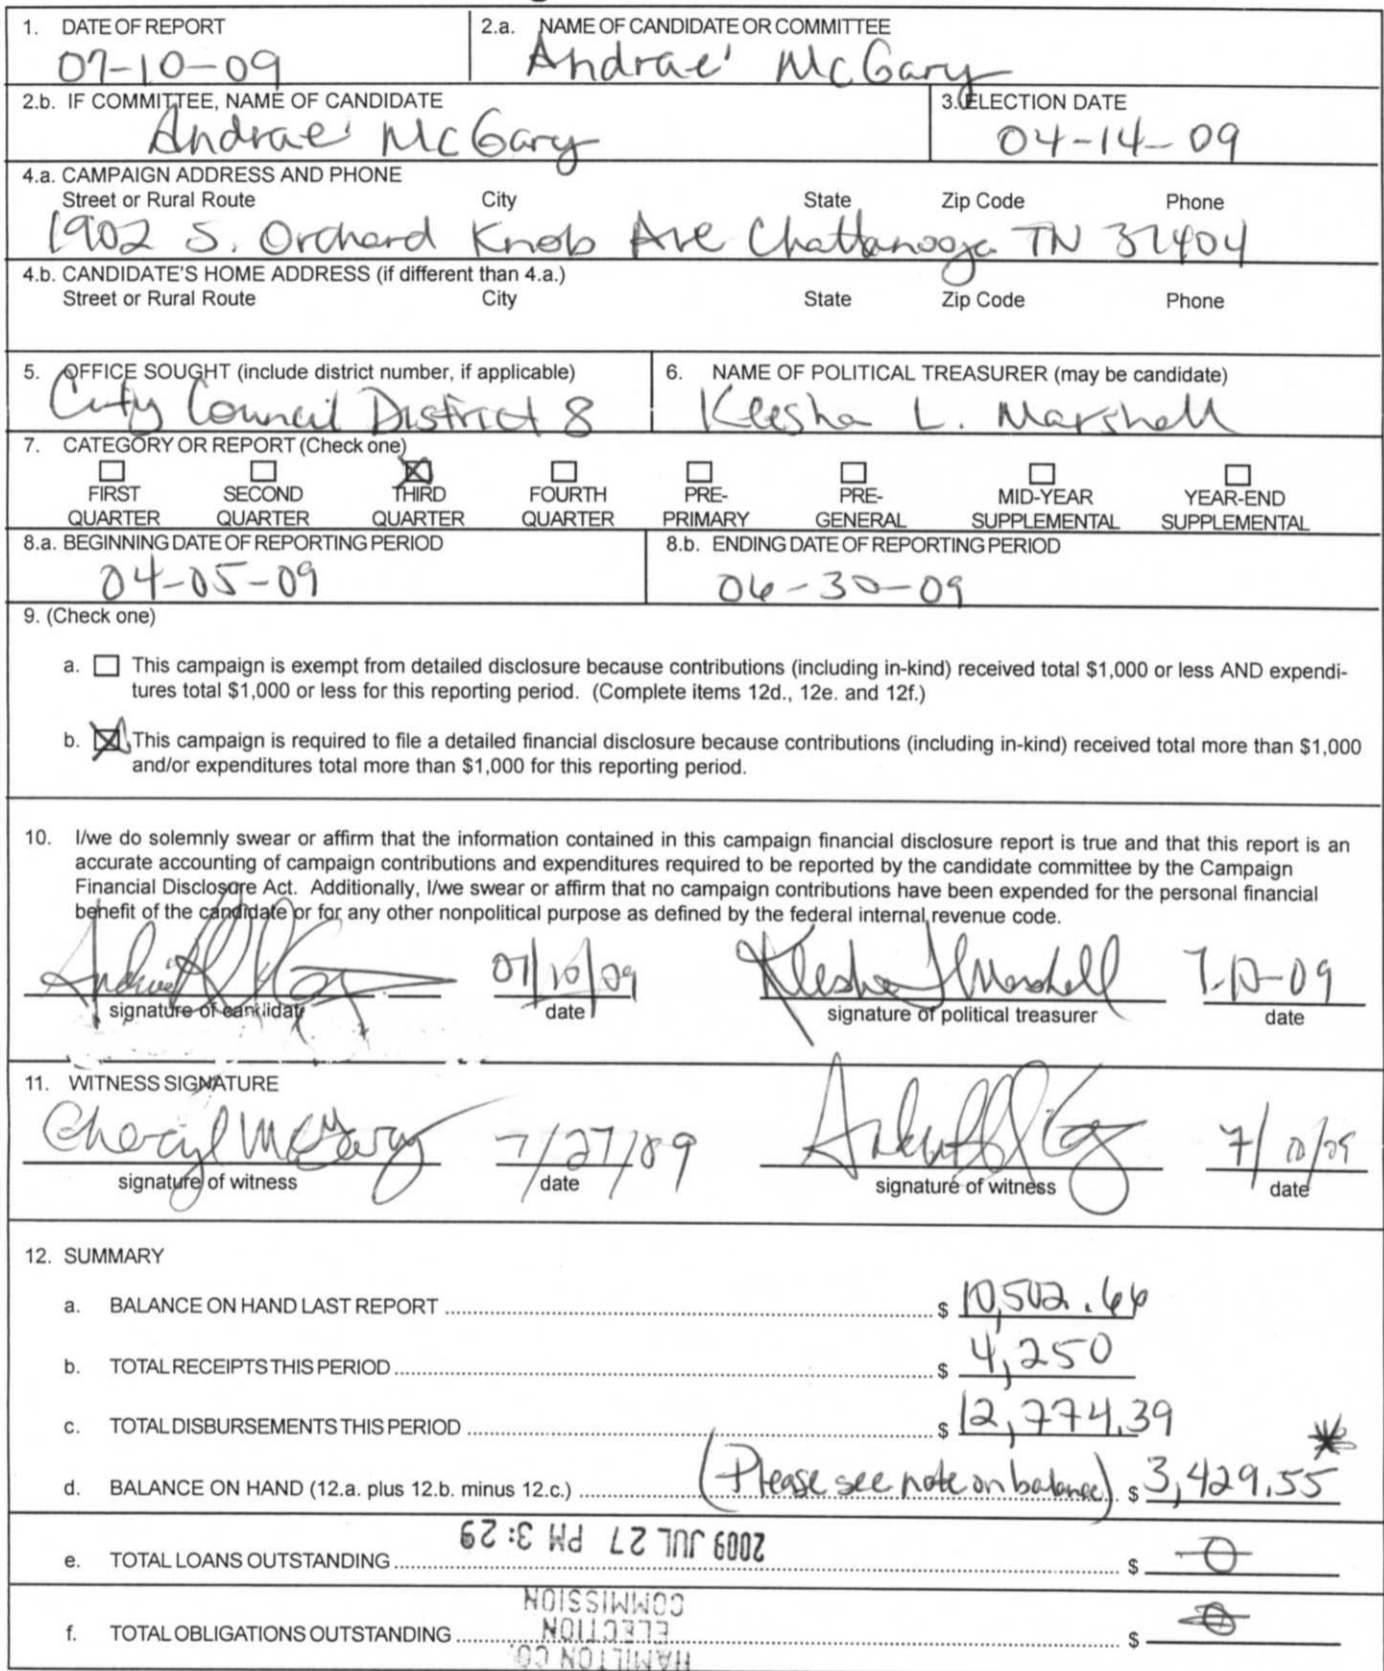 1. DATE OF REPORT
07-10-09
2.a. NAME OF CANDIDATE OR COMMITTEE
Andrae' McGary
2.b. IF COMMITTEE, NAME OF CANDIDATE
Andrae' McGary
3. ELECTION DATE
04-14-09
4.a. CAMPAIGN ADDRESS AND PHONE
Street or Rural Route City State Zip Code Phone
1902 S. Orchard Knob Ave Chattanooga TN 37404
4.b. CANDIDATE'S HOME ADDRESS (if different than 4.a.)
Street or Rural Route City State Zip Code Phone
5. OFFICE SOUGHT (include district number, if applicable)
City Council District 8
6. NAME OF POLITICAL TREASURER (may be candidate)
Keesha L. Marshall
7. CATEGORY OR REPORT (Check one)
FIRST QUARTER
SECOND QUARTER
THIRD QUARTER
FOURTH QUARTER
PRE-PRIMARY
PRE-GENERAL
MID-YEAR SUPPLEMENTAL
YEAR-END SUPPLEMENTAL
8.a. BEGINNING DATE OF REPORTING PERIOD
04-05-09
8.b. ENDING DATE OF REPORTING PERIOD
06-30-09
9. (Check one)
a. This campaign is exempt from detailed disclosure because contributions (including in-kind) received total $1,000 or less AND expendi-
tures total $1,000 or less for this reporting period. (Complete items 12d., 12e. and 12f.)
b. This campaign is required to file a detailed financial disclosure because contributions (including in-kind) received total more than $1,000
and/or expenditures total more than $1,000 for this reporting period.
10. I/we do solemnly swear or affirm that the information contained in this campaign financial disclosure report is true and that this report is an
accurate accounting of campaign contributions and expenditures required to be reported by the candidate committee by the Campaign
Financial Disclosure Act. Additionally, I/we swear or affirm that no campaign contributions have been expended for the personal financial
benefit of the candidate or for any other nonpolitical purpose as defined by the federal internal revenue code.
07/10/09 Keesha L Marshall 7-10-09
signature of candidate date signature of political treasurer date
11. WITNESS SIGNATURE
Cheryl McGary 7/27/09 7/10/09
signature of witness date signature of witness date
12. SUMMARY
a. BALANCE ON HAND LAST REPORT $ 10,502.66
b. TOTAL RECEIPTS THIS PERIOD $ 4,250
c. TOTAL DISBURSEMENTS THIS PERIOD $ 12,774.39
d. BALANCE ON HAND (12.a. plus 12.b. minus 12.c.) (Please see note on balance) $ 3,429.55 *
2009 JUL 27 PM 3:29
e. TOTAL LOANS OUTSTANDING $ 0
HAMILTON CO.
ELECTION
COMMISSION
f. TOTAL OBLIGATIONS OUTSTANDING $ 0